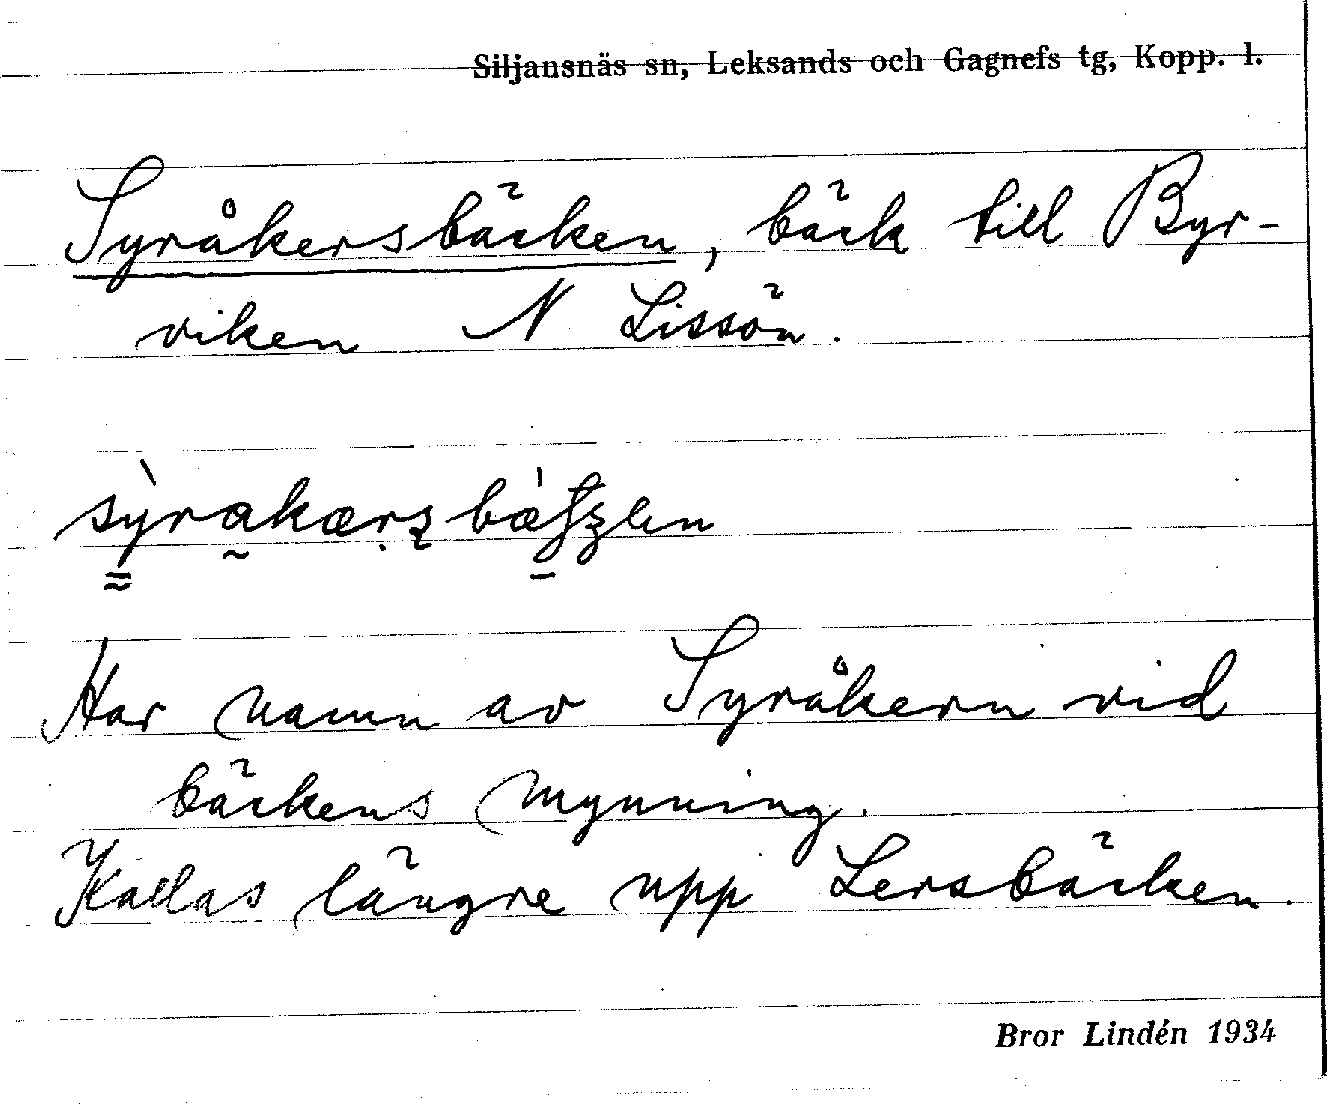 Siljansnäs sn, Leksands och Gagnefs tg, Kopp. l.
Syråkersbäcken, bäck till Byr-
viken N Lissön.
Har namn av Syråkern vid
bäckens mynning.
Kallas längre upp Lersbäcken.
Bror Lindén 1934